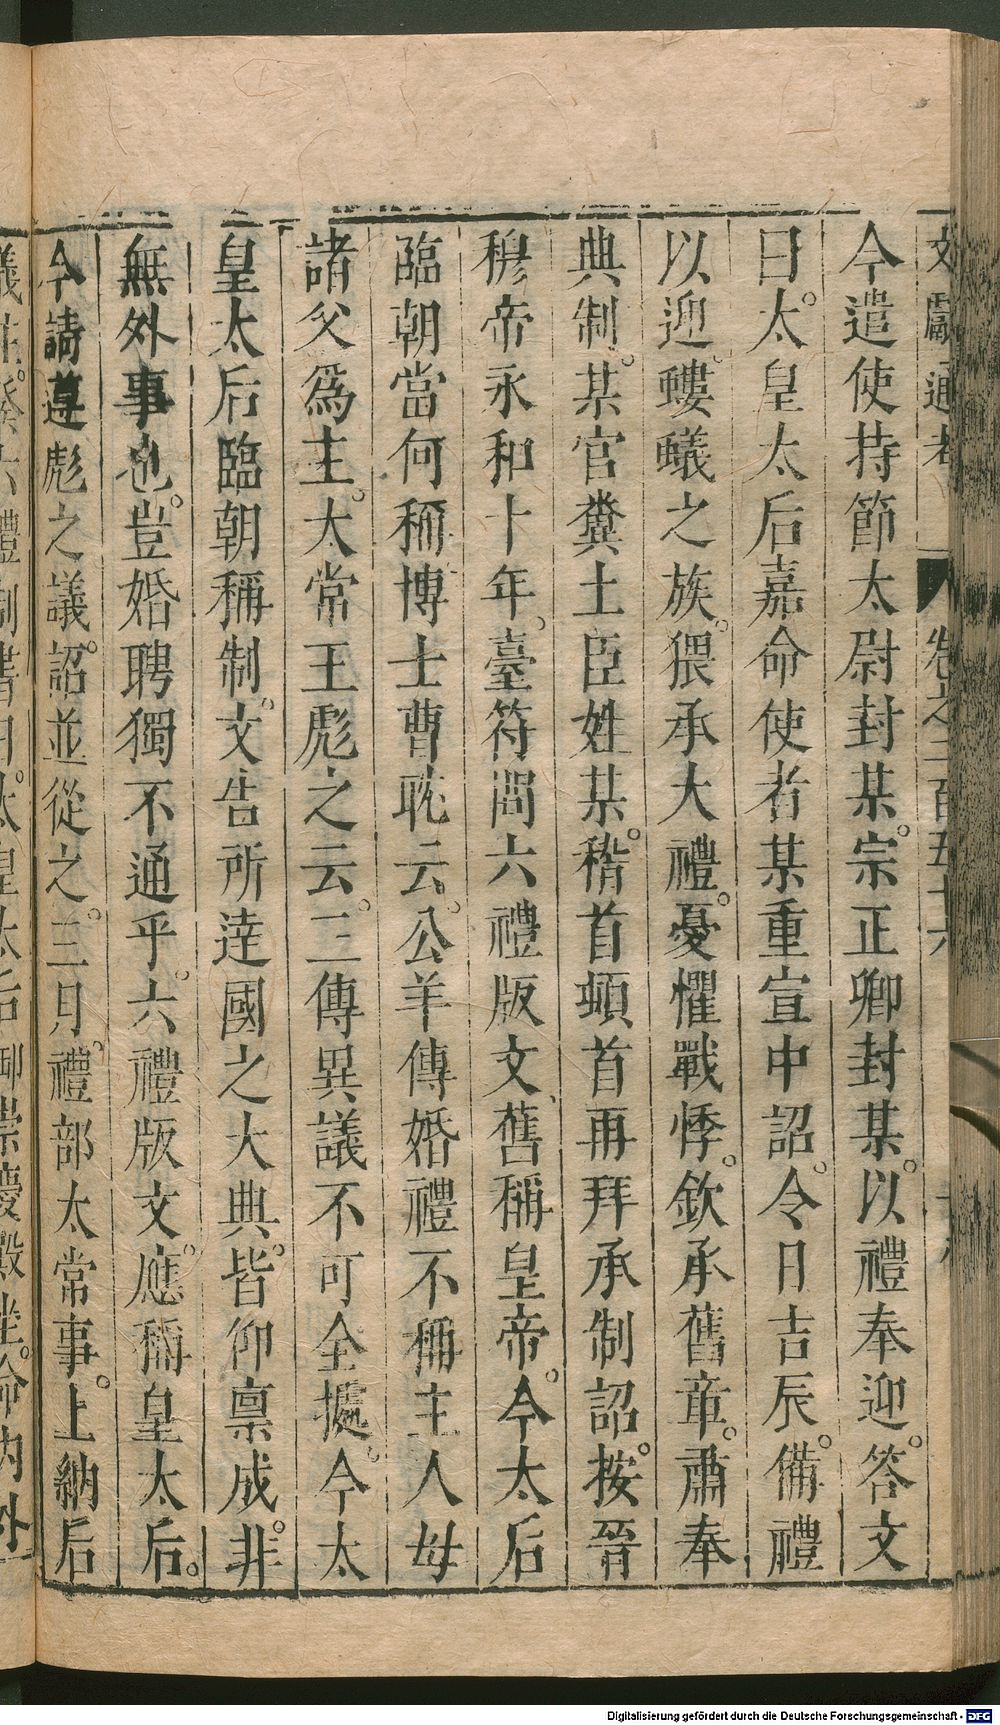 文獻通考 卷之二百五十六
今遣使持節太尉封某。宗正卿封某。以禮奉迎。答文
曰。太皇太后嘉命使者某重宣中詔。令日吉辰。備禮
以迎。螻蟻之族。猥承大禮。憂懼戰悸。欽承舊章。肅奉
典制。某官糞土臣姓某。稽首頓首再拜承制詔。按。晉
穆帝永和十年。臺符問六禮版文、舊稱皇帝。今太后
臨朝當何稱博士曹耽云。公羊傳婚禮不稱主人母
諸父爲主。太常王彪之云。三傳異議不可全據。今太
皇太后臨朝稱制。文告所達國之大典。皆仰禀成。非
無外事也。豈婚聘獨不通乎。六禮版文。應稱皇太后。
今請遵彪之議。詔並從之。三月。禮部太常事。上納后
儀注。發六禮制書日。太皇太后御崇慶殿坐。命內外
Digitalisierung gefördert durch die Deutsche Forschungsgemeinschaft - DFG